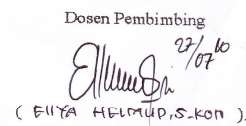 Dosen Pembimbing
27/07 10
( EllYA HELMUD, S.KOM ).